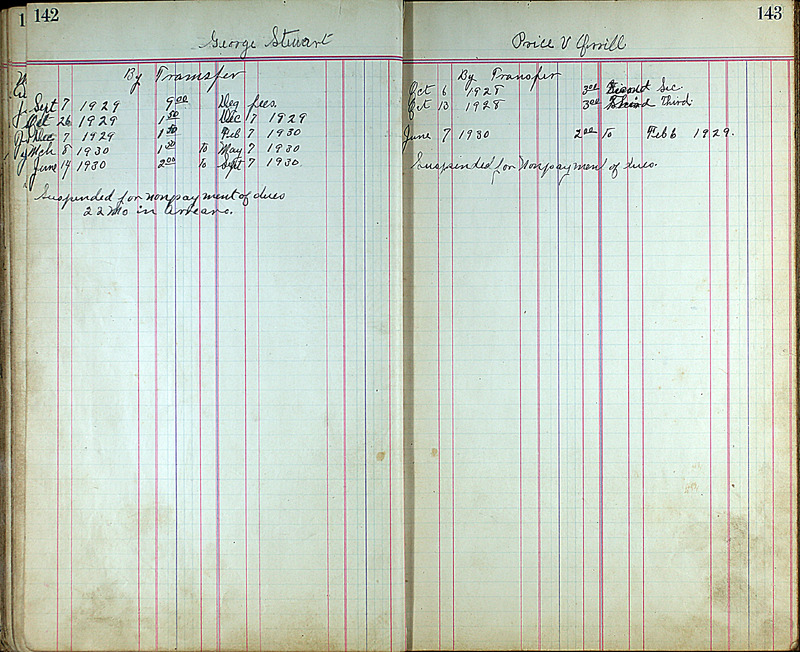 142
George Stewart
By Transfer
Sept 7 1929 9 00 Deg fees.
Oct 26 1929 1 50 Dec 7 1929
Dec 7 1929 1 50 Feb 7 1930
Mch 8 1930 1 50 To May 7 1930
June 14 1930 2 00 To Sept 7 1930
Suspended for nonpayment of dues
22 Mo in Arrears.
143
Price V Orrill
By Transfer
Oct 6 1928 3 00 Sec
Oct 13 1928 3 00 Third
June 7 1930 2 00 To Feb 6 1929.
Suspended for Nonpayment of dues.